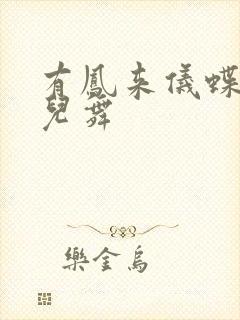 有鳳来儀蝶
兒舞
樂金烏